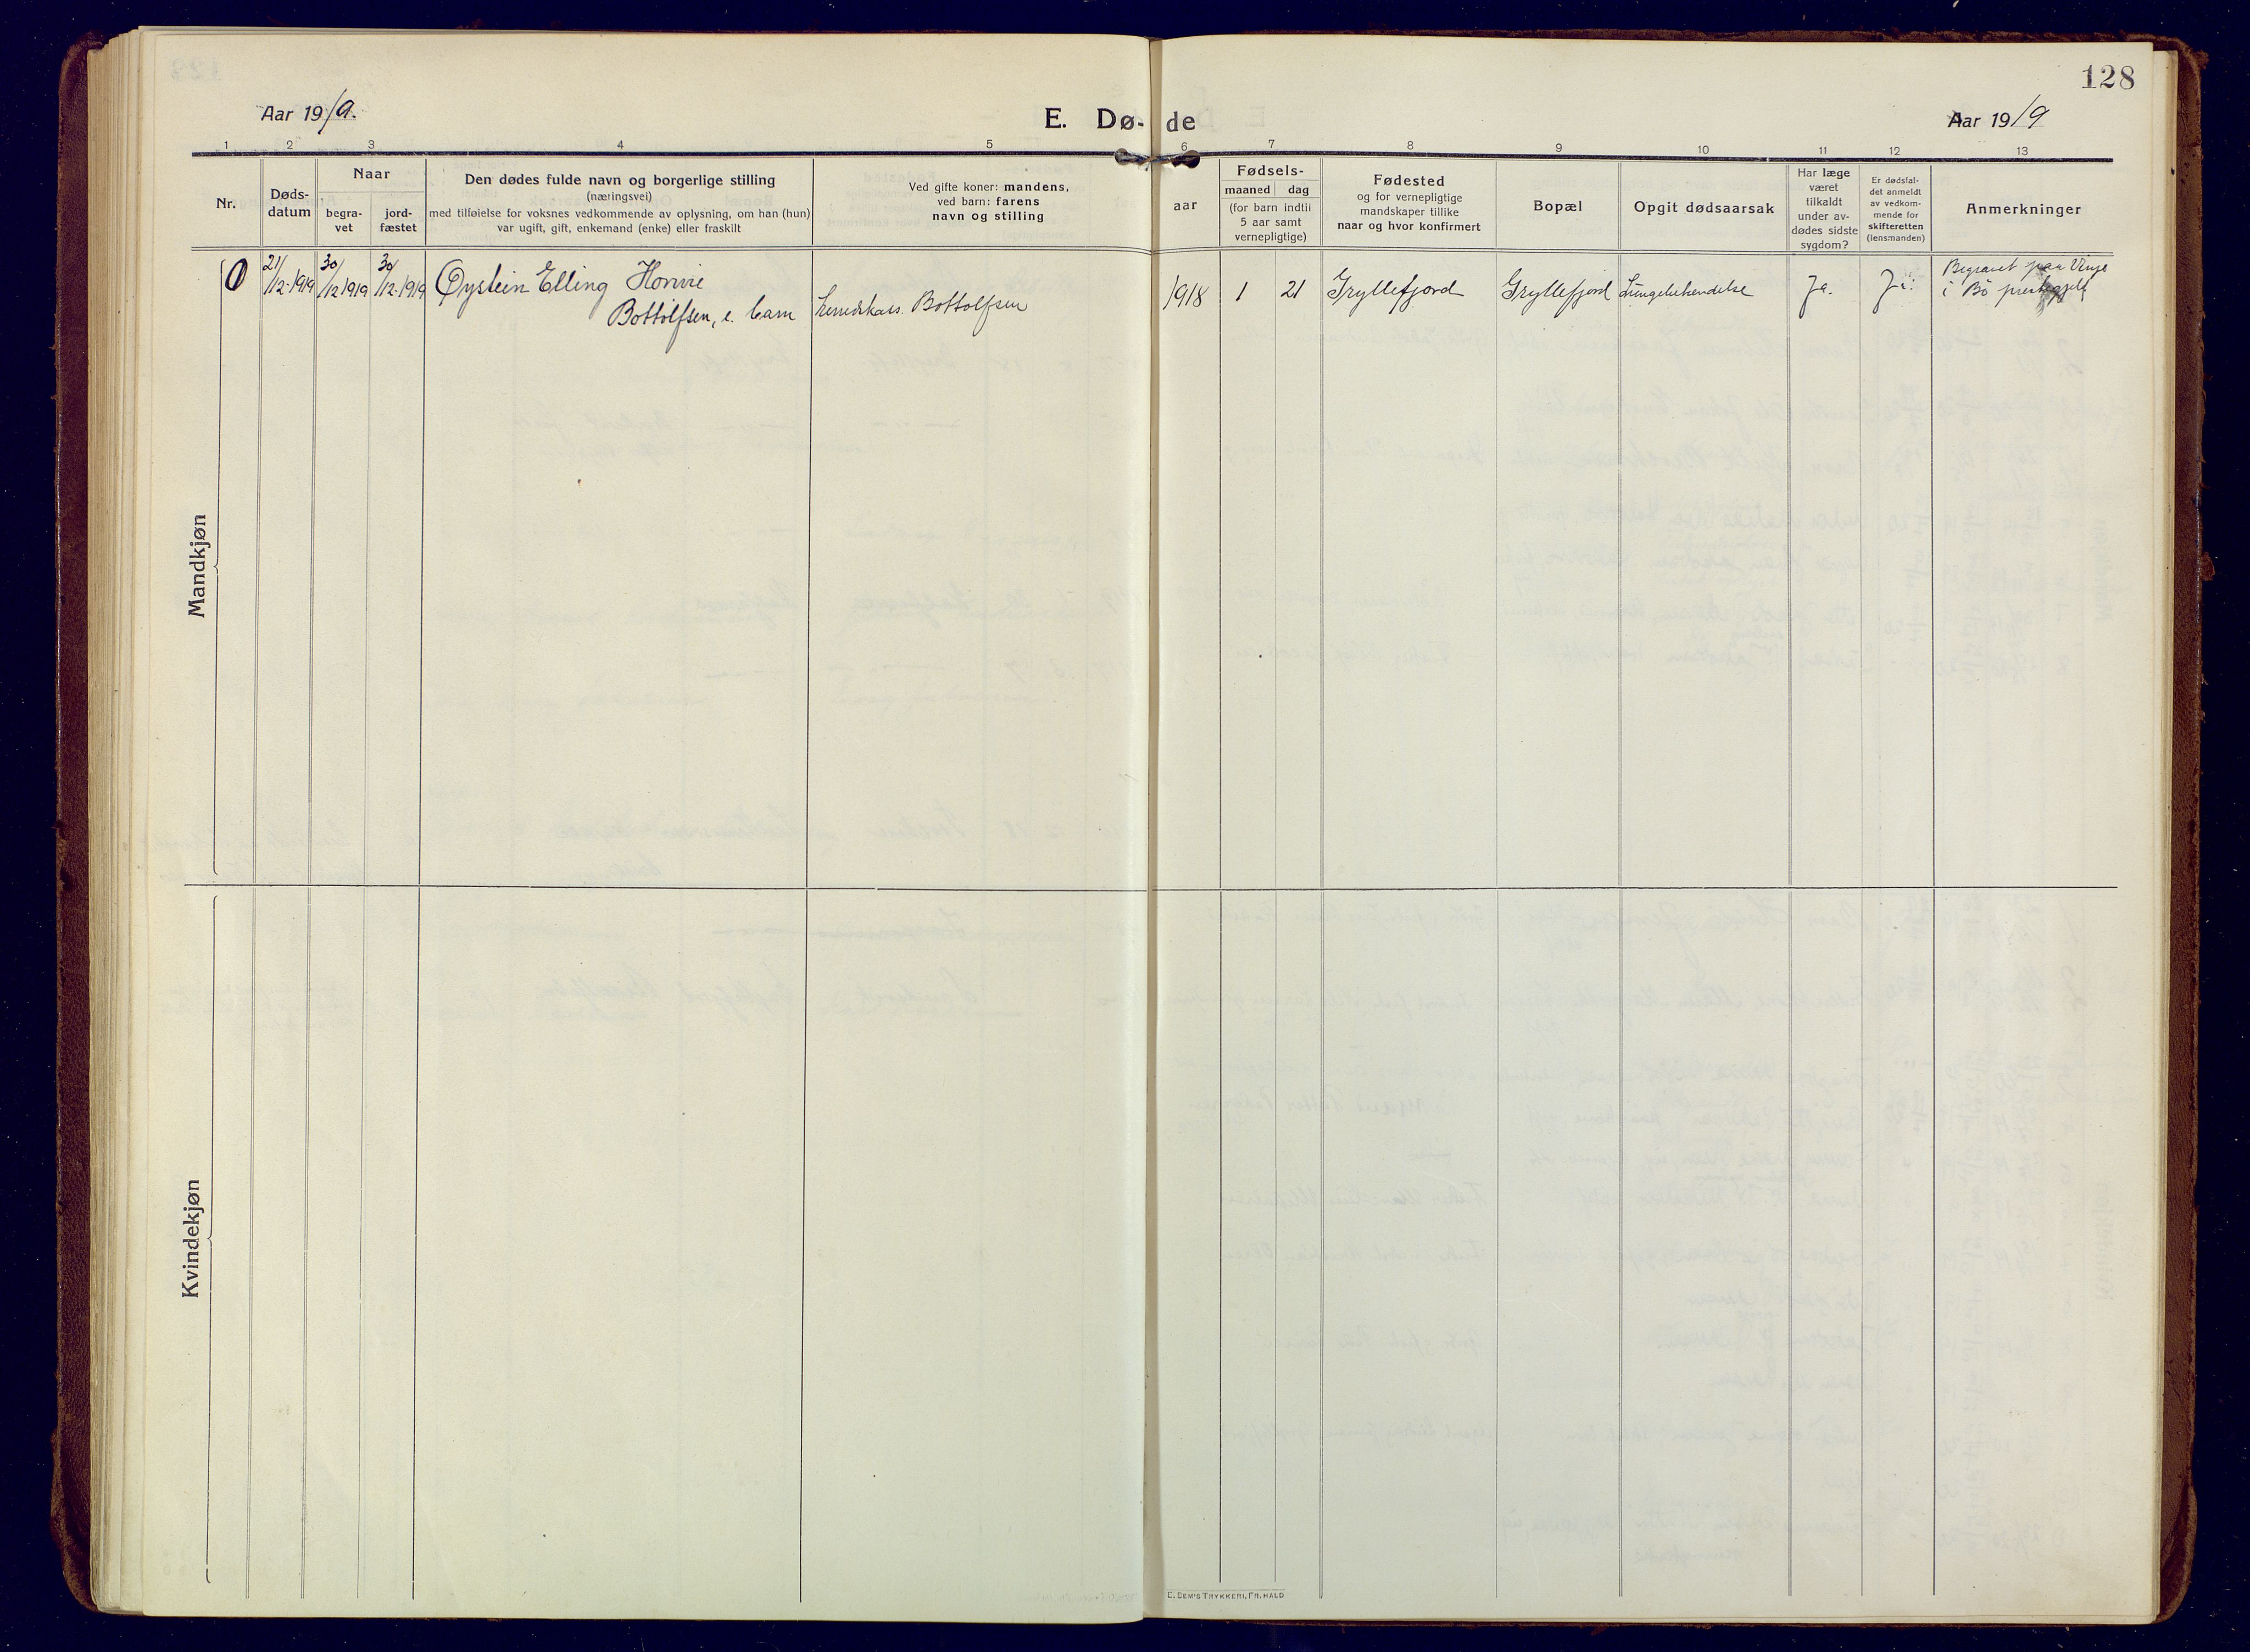 128
Aar 1919.
E. Dø-
de
Aar 1919
1 2 3 4 5 6 7 8 9 10 11 12 13
Nr.
Døds-
datum
Naar
begra-
vet
jord-
fæstet
Den dødes fulde navn og borgerlige stilling
(næringsvei)
med tilføielse for voksnes vedkommende av oplysning, om han (hun)
var ugift, gift, enkemand (enke) eller fraskilt
Ved gifte koner: mandens,
ved barn: farens
navn og stilling
aar
Fødsels-
maaned dag
(for barn indtil
5 aar samt
vernepligtige)
Fødested
og for vernepligtige
mandskaper tillike
naar og hvor konfirmert
Bopæl
Opgit dødsaarsak
Har læge
været
tilkaldt
under av-
dødes sidste
sygdom?
Er dødsfal-
det anmeldt
av vedkom-
mende for
skifteretten
(lensmanden)
Anmerkninger
Mandkjøn
21/12-1919
30/12 1919
30/12-1919
Øystein Elling
Bottolfsen, e. barn
Herredskass. Bottolfsen
1918
1
21
Gryllefjord
Gryllefjord
Lungebetendelse
Ja.
Ja.
Begravet paa Vinje
i Bø prestegjeld
Kvindekjøn
C. DEM'S TRYKKERI, FR. HALD